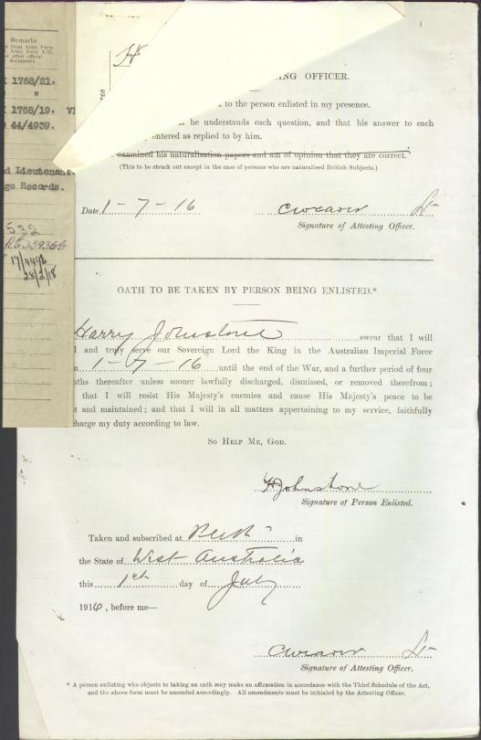 Remarks
1768/21.
1768/19.
44/4939.
d Lieutenant
go Records.
532
17/4496
28/2/18
ING OFFICER.
to the person enlisted in my presence.
he understands each question, and that his answer to each
entered as replied to by him.
examined his naturalisation papers and am of opinion that they are correct.
(This to be struck out except in the case of persons who are naturalised British Subjects.)
Date 1-7-16
Signature of Attesting Officer.
OATH TO BE TAKEN BY PERSON BEING ENLISTED.*
Harry Johnstone swear that I will
and truly serve our Sovereign Lord the King in the Australian Imperial Force
1-7-16 until the end of the War, and a further period of four
ths thereafter unless sooner lawfully discharged, dismissed, or removed therefrom;
that I will resist His Majesty's enemies and cause His Majesty's peace to be
t and maintained; and that I will in all matters appertaining to my service, faithfully
charge my duty according to law.
SO HELP ME, GOD.
H Johnstone
Signature of Person Enlisted.
Taken and subscribed at Perth in
the State of West Australia
this 1st day of July
1916, before me—
Signature of Attesting Officer.
* A person enlisting who objects to taking an oath may make an affirmation in accordance with the Third Schedule of the Act,
and the above form must be amended accordingly. All amendments must be initialed by the Attesting Officer.